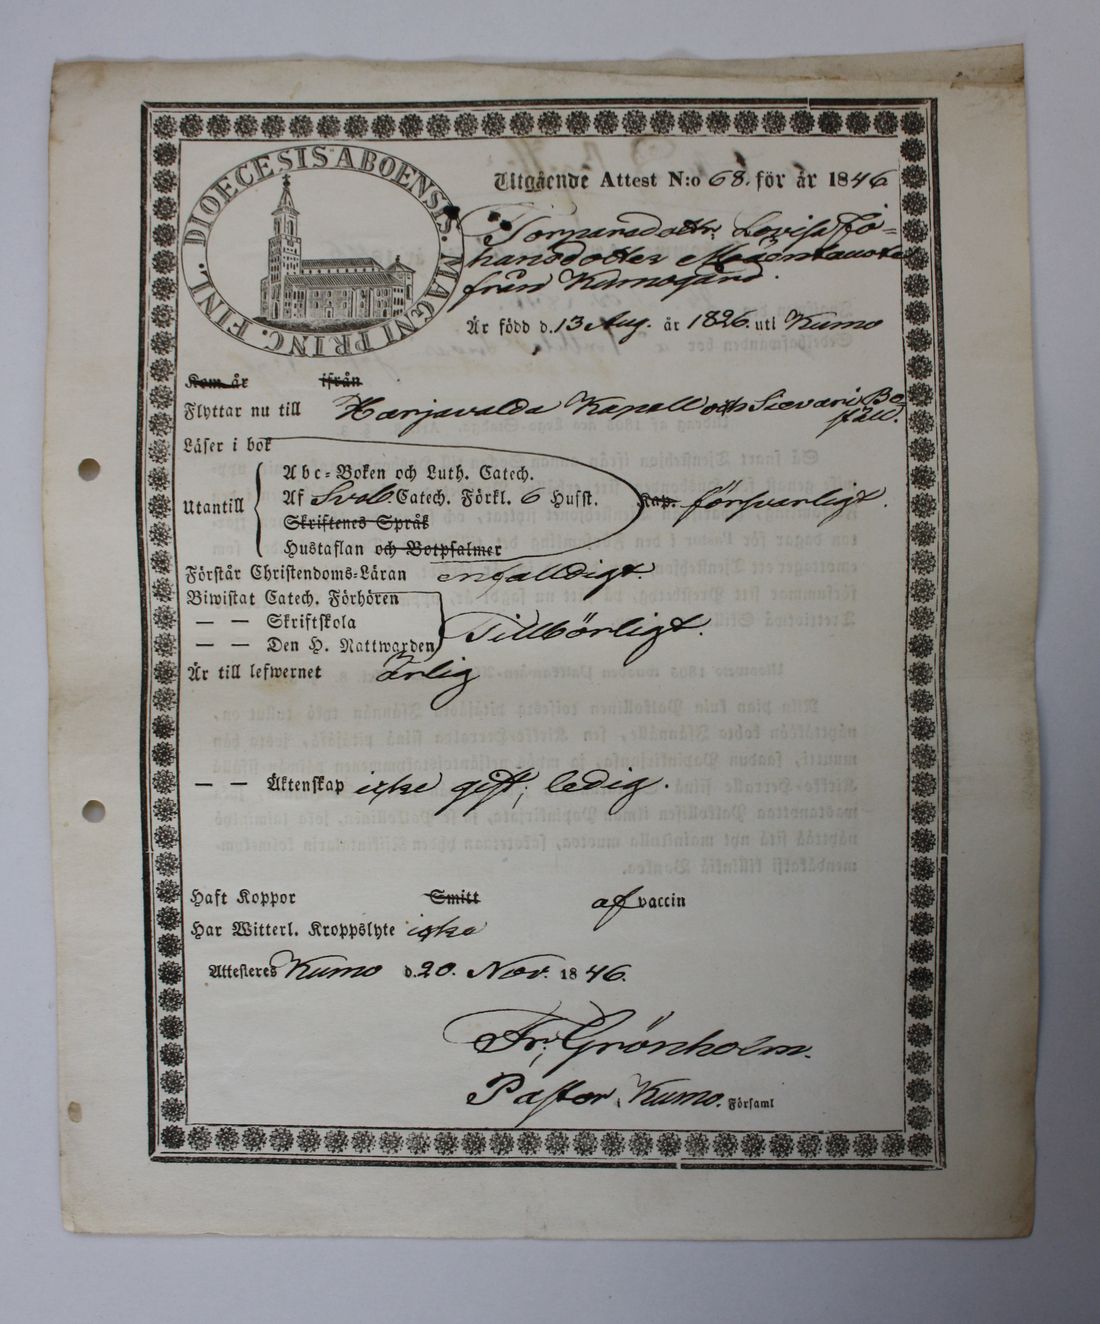 DIOECESIS ABOENSIS. MAGNI PRINC. FINL.
Utgående Attest N:o 68. för år 1846
Torparedottr. Lovisa Jo-
hansdotter
från Kumogård.
Är född d. 13 Aug. år 1826. uti Kumo
Kom år ifrån
Flyttar nu till Harjavalda Kapell och Sievari Bo-
ställ.
Läser i bok
Utantill
Abc-Boken och Luth. Catech.
Af Sveb. Catech. Förkl. 6 Hufst. Kap. försvarligt.
Skriftenes Språk
Hustaflan och Botpsalmer
Förstår Christendoms-Läran enfalldigt.
Biwistat Catech. Förhören
— — Skriftskola Tillbörligt.
— — Den H. Nattwarden
Är till lefwernet Ärlig
— — Äktenskap icke gift, ledig.
Haft Koppor Smitt af vaccin
Har Witterl. Kroppslyte icke
Attesteres Kumo d. 20. Nov. 1846.
Fr. Grönholm.
Pastor i Kumo. Församl